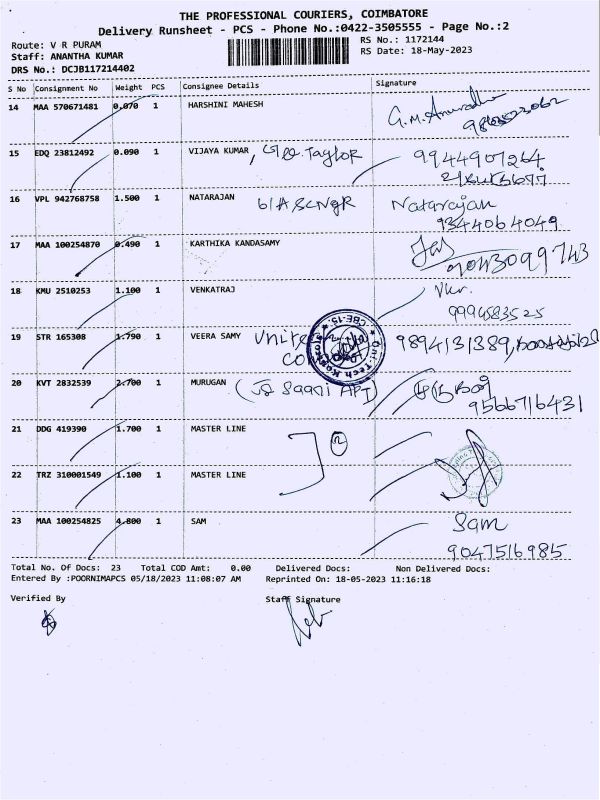 THE PROFESSIONAL COURIERS, COIMBATORE
Delivery Runsheet - PCS - Phone No.:0422-3505555 - Page No.:2
Route: V R PURAM
RS No.: 1172144
Staff: ANANTHA KUMAR
RS Date: 18-May-2023
DRS No.: DCJB117214402
S No Consignment No Weight PCS Consignee Details Signature
14 MAA 570671481 0.070 1 HARSHINI MAHESH G.M.Anuradha
15 EDQ 23812492 0.090 1 VIJAYA KUMAR, Taylor 9944907264
16 VPL 942768758 1.500 1 NATARAJAN Natarajan
9344064049
17 MAA 100254870 0.490 1 KARTHIKA KANDASAMY
9043099743
18 KMU 2510253 1.100 1 VENKATRAJ
9994583525
19 STR 165308 1.790 1 VEERA SAMY 9894131389,
20 KVT 2832539 2.700 1 MURUGAN
9566716431
21 DDG 419390 1.700 1 MASTER LINE
2
22 TRZ 310001549 1.100 1 MASTER LINE
23 MAA 100254825 4.800 1 SAM Sam
9047516985
Total No. Of Docs: 23 Total COD Amt: 0.00 Delivered Docs: Non Delivered Docs:
Entered By :POORNIMAPCS 05/18/2023 11:08:07 AM Reprinted On: 18-05-2023 11:16:18
Verified By Staff Signature